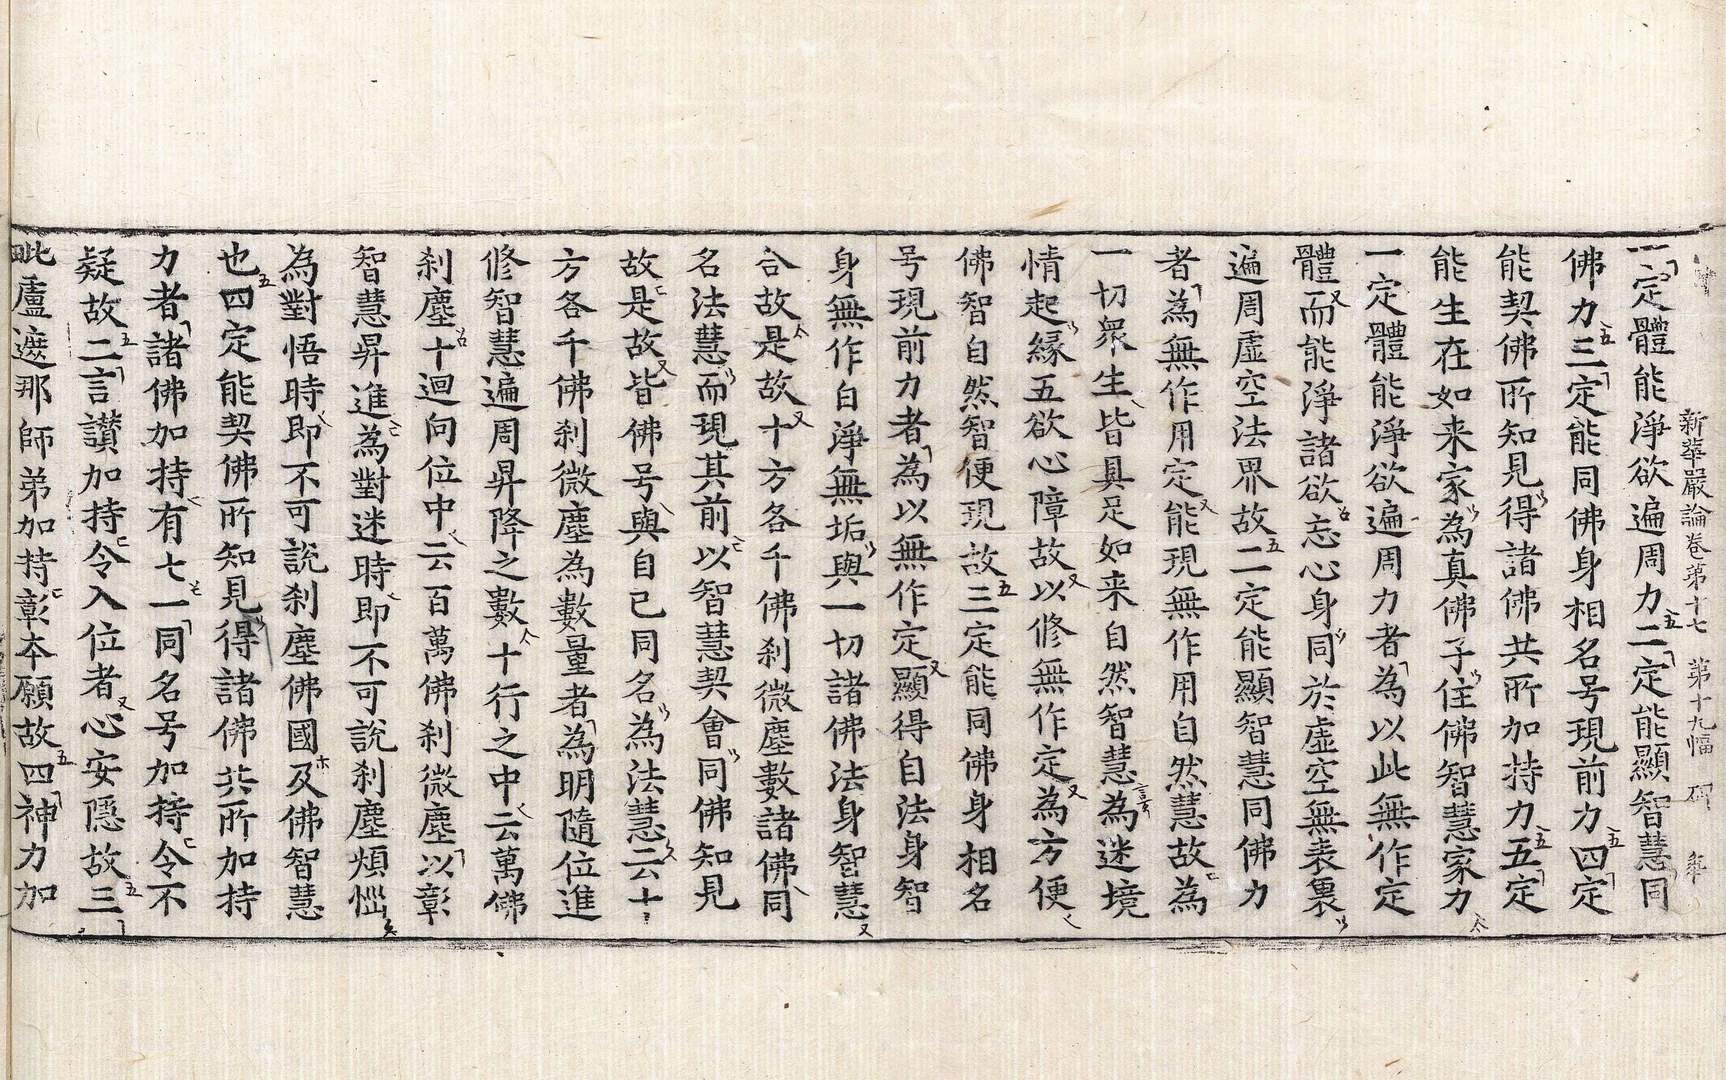 新華嚴論卷第十七 第十九幅
一定體能淨欲遍周力二定能顯智慧同
佛力三定能同佛身相名号現前力四定
能契佛所知見得諸佛共所加持力五定
能生在如来家為真佛子住佛智慧家力
一定體能淨欲遍周力者為以此無作定
體而能淨諸欲忘心身同於虛空無表裏
遍周虛空法界故二定能顯智慧同佛力
者為無作用定能現無作用自然慧故為
一切衆生皆具足如来自然智慧為迷境
情起緣五欲心障故以修無作定為方便
佛智自然智便現故三定能同佛身相名
号現前力者為以無作定顯得自法身智
身無作白淨無垢與一切諸佛法身智慧
合故是故十方各千佛刹微塵數諸佛同
名法慧而現其前以智慧契會同佛知見
故是故皆佛号與自己同名為法慧云十
方各千佛刹微塵為數量者為明隨位進
修智慧遍周昇降之數十行之中云萬佛
刹塵十迴向位中云百萬佛刹微塵以彰
智慧昇進為對迷時即不可說刹塵煩惱
為對悟時即不可說刹塵佛國及佛智慧
也四定能契佛所知見得諸佛共所加持
力者諸佛加持有七一同名号加持令不
疑故二言讃加持令入位者心安隱故三
毗盧遮那師弟加持彰本願故四神力加